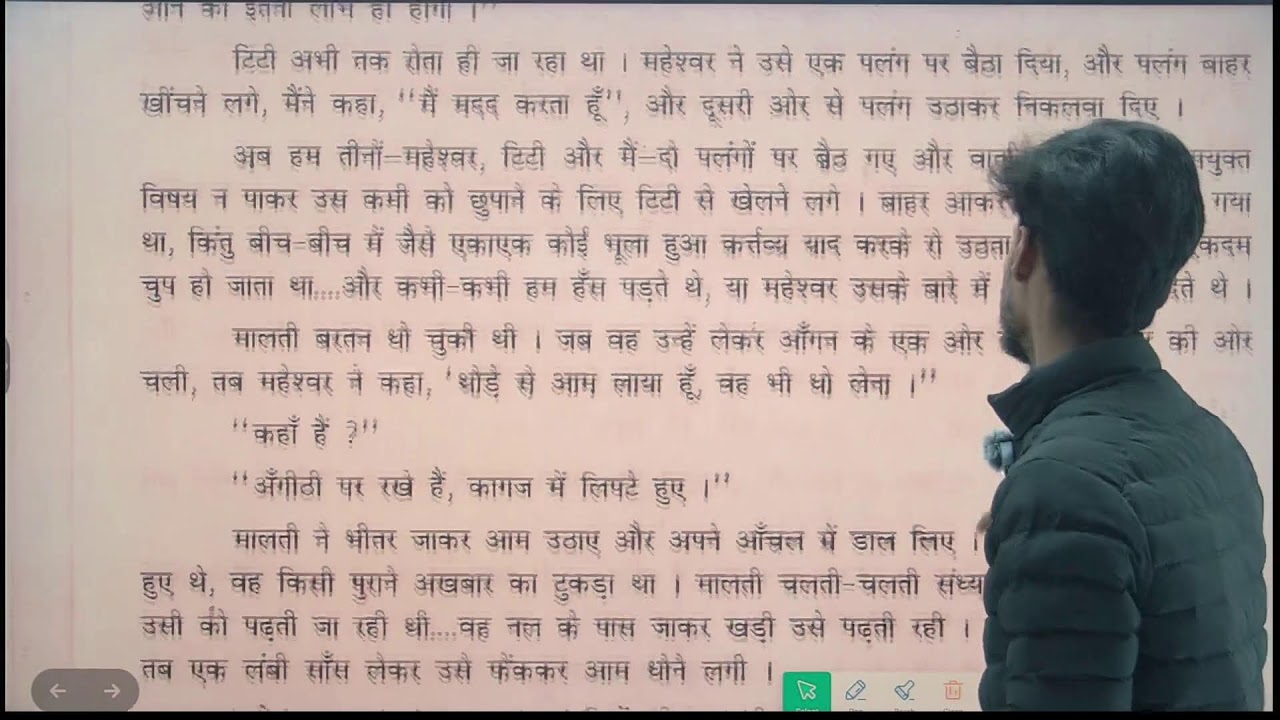 टिटी अभी तक रोता ही जा रहा था । महेश्वर ने उसे एक पलंग पर बैठा दिया, और पलंग बाहर
खींचने लगे, मैंने कहा, "मैं मदद करता हूँ", और दूसरी ओर से पलंग उठाकर निकलवा दिए ।
अब हम तीनों=महेश्वर, टिटी और मैं=दो पलंगों पर बैठ गए और
विषय न पाकर उस कमी को छुपाने के लिए टिटी से खेलने लगे । बाहर गया
था, किंतु बीच-बीच में जैसे एकाएक कोई भूला हुआ कर्त्तव्य याद करके रो उठता
चुप हो जाता था....और कभी-कभी हम हँस पड़ते थे, या महेश्वर उसके बारे में थे ।
मालती बरतन धो चुकी थी । जब वह उन्हें लेकर आँगन के एक ओर की ओर
चली, तब महेश्वर ने कहा, 'थोड़े से आम लाया हूँ, वह भी धो लेना ।"
"कहाँ हैं ?"
"अँगीठी पर रखे हैं, कागज में लिपटे हुए ।"
मालती ने भीतर जाकर आम उठाए और अपने आँचल में डाल लिए ।
हुए थे, वह किसी पुराने अखबार का टुकड़ा था । मालती चलती-चलती
उसी को पढ़ती जा रही थी....वह नल के पास जाकर खड़ी उसे पढ़ती रही ।
तब एक लंबी साँस लेकर उसे फेंककर आम धोने लगी ।